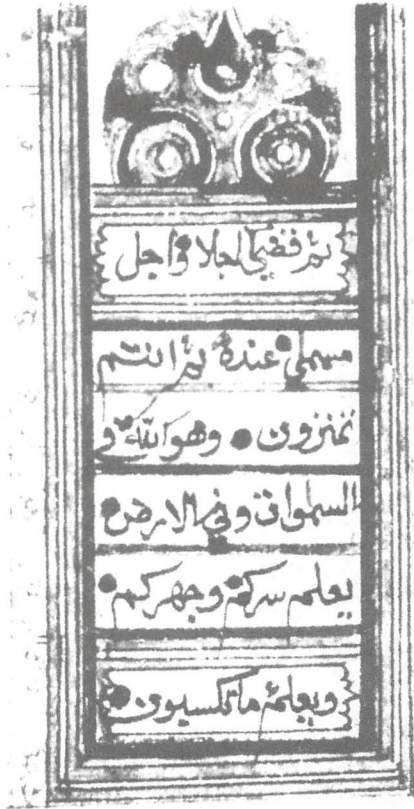 ثم قضى اجلا واجل
مسمى عنده ثم انتم
تمترون ● وهو الله و
السموات وفي الارض
يعلم سركم وجهركم
ويعلم ما تكسبون